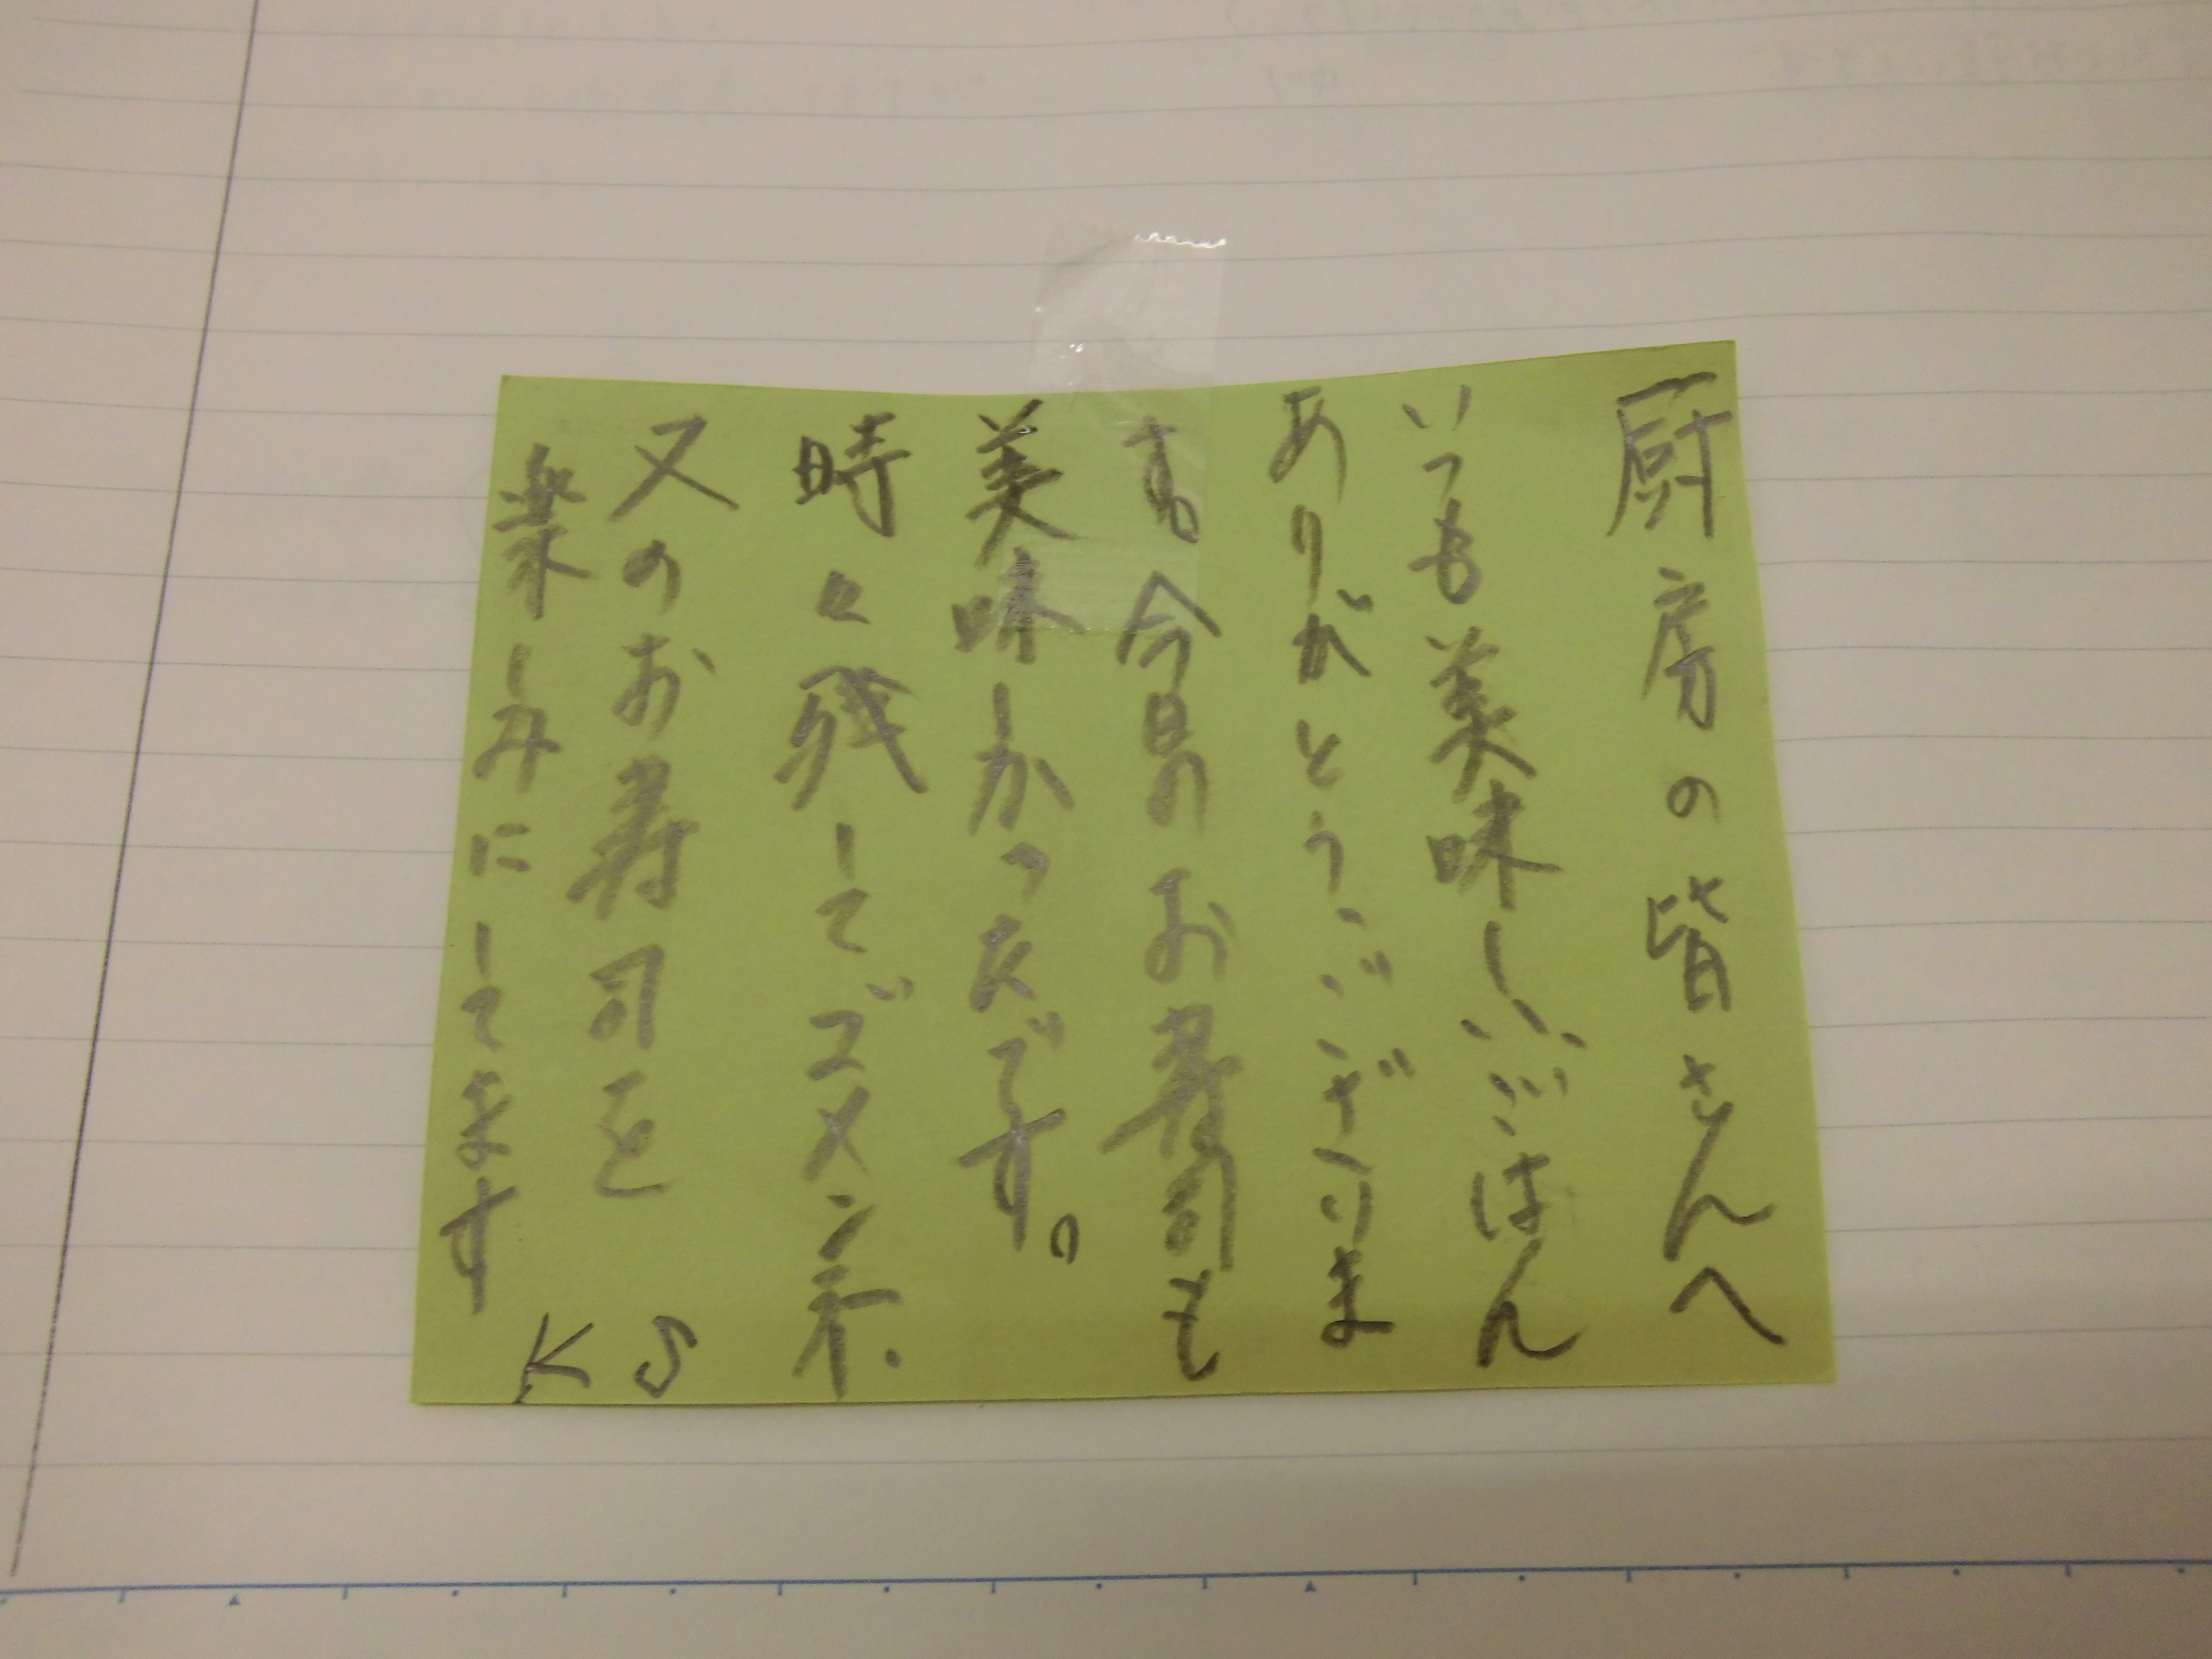 厨房の皆さんへ
いつも美味しいごはん
ありがとうございま
す。今日のお寿司も
美味しかったです。
時々残してゴメンネ.
又のお寿司を
楽しみにしてます
KS